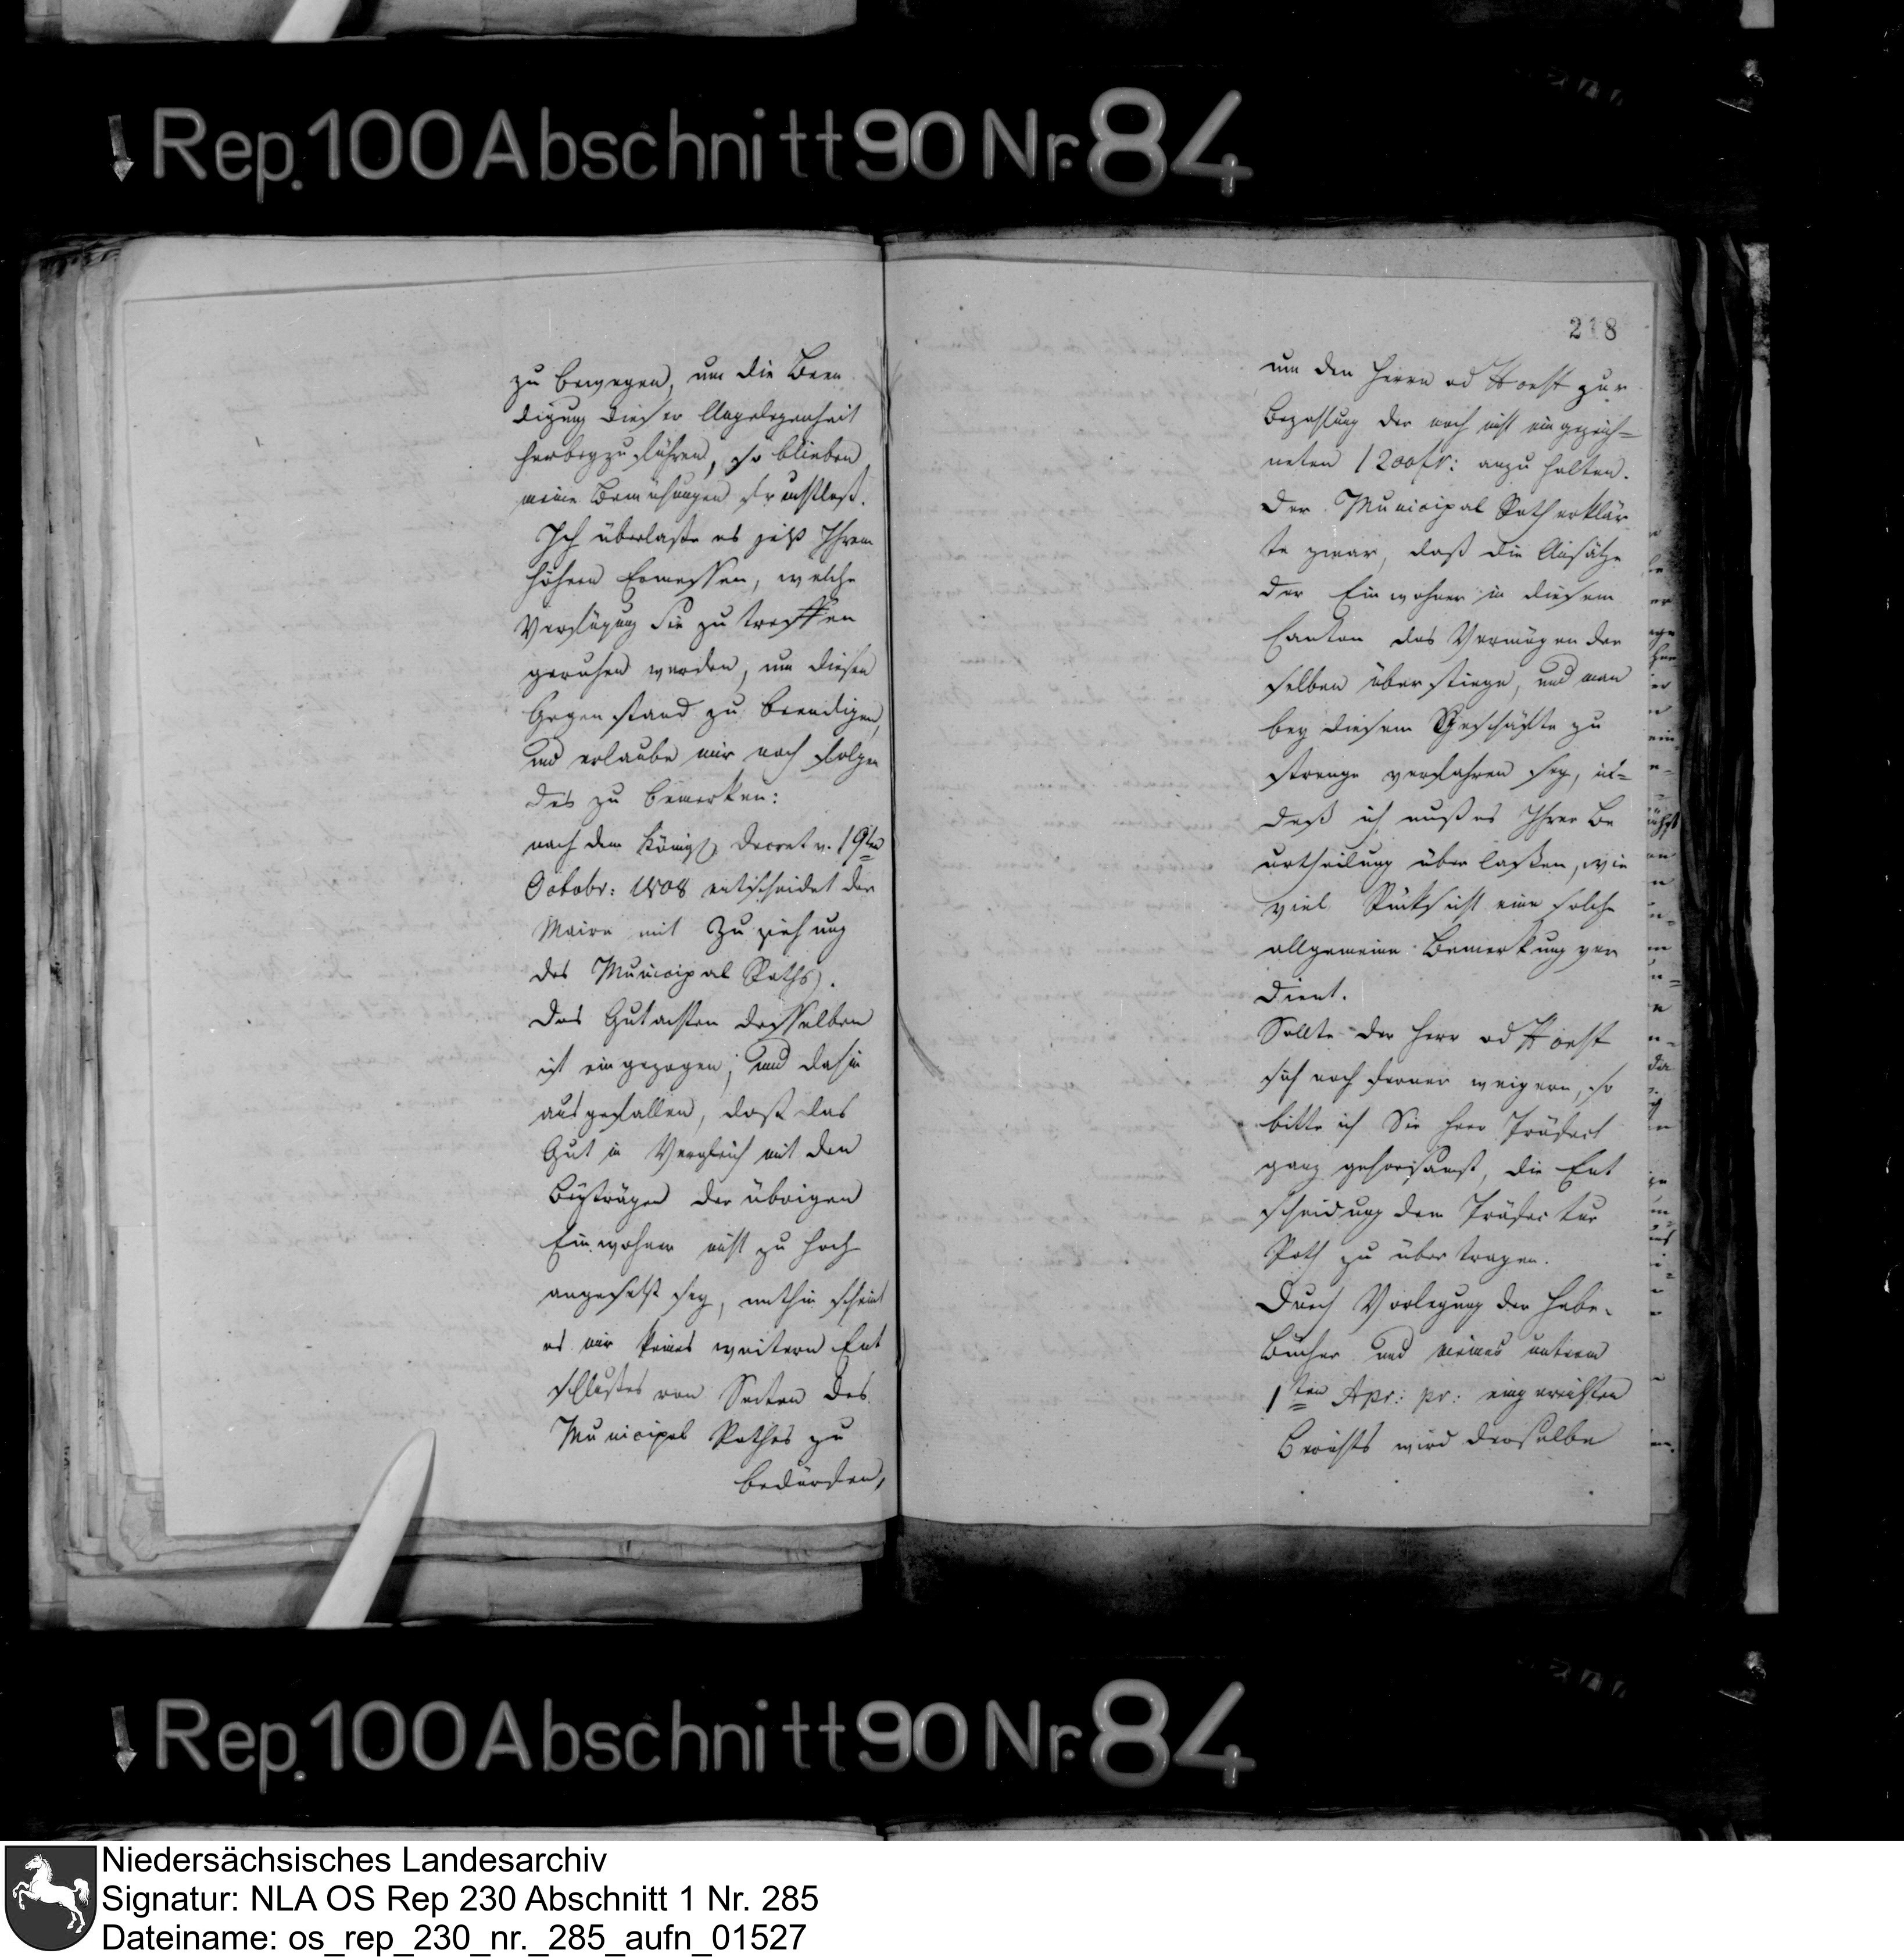 Rep. 100 Abschnitt 90 Nr. 84
zu bewegen, um die Been
digung dieser Angelegenheit
herbeyzuführen, so blieben
meine Bemühungen fruchtloß.
Ich überlaße es jetzt Ihrem
höhern Ermessen, welche
Verfügung Sie zu treffen
geruhen werden, um diesen
Gegenstand zu beendigen,
und erlaube mir noch folgen
des zu bemerken:
nach dem Königl. Decret v. 19ten
Octobr: 1808 entscheidet der
Maire mit Zuziehung
des Municipal Raths.
Das Gutachten desselben
ist eingezogen; und dahin
ausgefallen, daß das
Gut in Vergleich mit den
Beyträgen der übrigen
Einwohner nicht zu hoch
angesetzt sey, mithin scheint
es mir keines weitern Ent
schlußes von Seiten des
Municipal Rathes zu
bedürfen,
218
um den Herrn ad Hoest zur
Bezahlung der noch nicht eingezeich=
neten 1200 fr: anzuhalten.
Der Municipal Rath erklär
te zwar, daß die Ansätze
der Einwohner in diesem
Canton das Vermögen der
selben überstiege, und man
bey diesem Geschäfte zu
strenge verfahren sey, in=
deß ich muß es Ihrer Be
urtheilung überlaßen, wie
viel Rücksicht eine solche
allgemeine Bemerkung ver
dient.
Sollte der Herr ad Hoest
sich noch ferner weigern, so
bitte ich Sie Herr Präfect
ganz gehorsamst, die Ent
scheidung dem Präfectur
Rath zu übertragen.
Durch Vorlegung der Hebe-
Bücher und meines unterm
1ten Apr: pr: eingereichten
Berichts wird derselbe
Rep. 100 Abschnitt 90 Nr. 84
Niedersächsisches Landesarchiv
Signatur: NLA OS Rep 230 Abschnitt 1 Nr. 285
Dateiname: os_rep_230_nr._285_aufn_01527